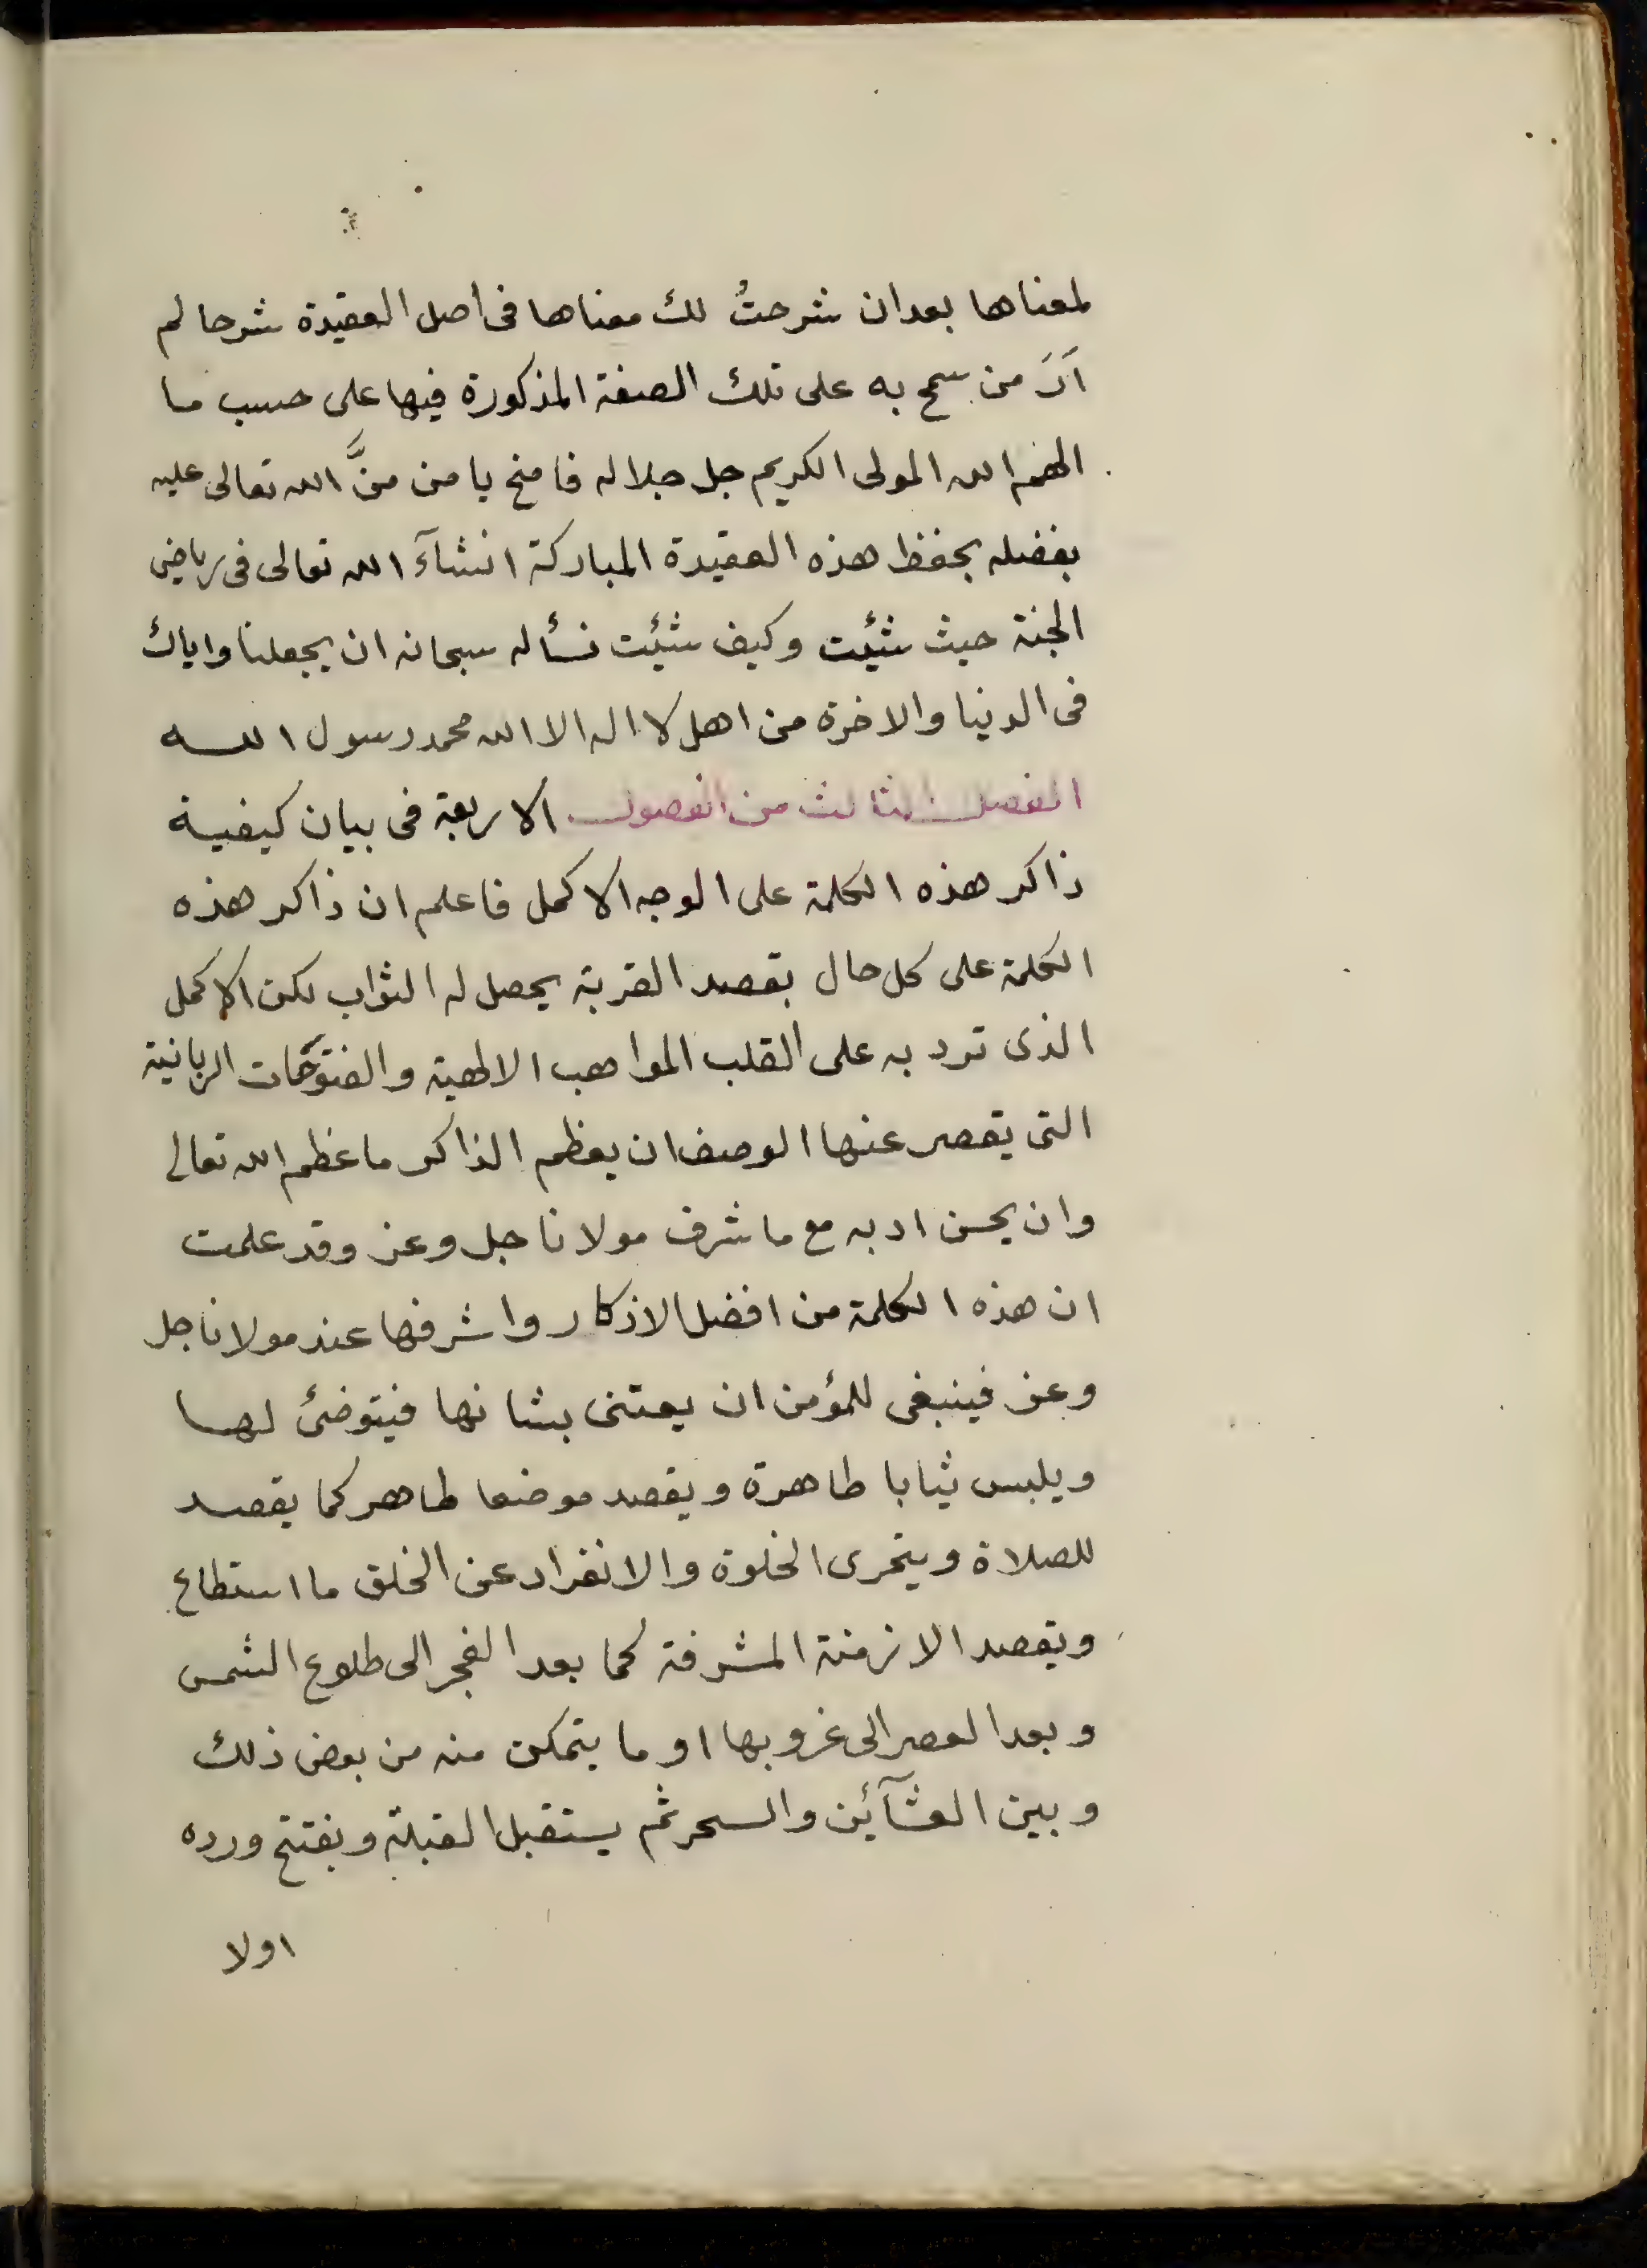 لمعناها بعد ان شرحتُ لك معناها في اصل العقيدة شرحا لم
اَرَ من سمح به على تلك الصفة المذكورة فيها على حسب ما
الهم الله المولى الكريم جل جلاله فامنح يا من منَّ الله تعالى عليه
بفضله بحفظ هذه العقيدة المباركة انشآء الله تعالى في رياض
الجنة حيث شئت وكيف شئت نسأله سبحانه ان يجعلنا واياك
في الدنيا والاخرة من اهل لا اله الا الله محمد رسول الله
الفصل الثالث من الفصول الاربعة في بيان كيفية
ذاكر هذه الكلمة على الوجه الاكمل فاعلم ان ذاكر هذه
الكلمة على كل حال بقصد القربة يحصل له الثواب لكن الاكمل
الذى ترد به على القلب المواهب الالهية والفتوحات الربانية
التى يقصر عنها الوصف ان يعظم الذاكر ما عظم الله تعالى
وان يحسن ادبه مع ما شرف مولانا جل وعز وقد علمت
ان هذه الكلمة من افضل الاذكار واشرفها عند مولانا جل
وعز فينبغى للمؤمن ان يعتنى بشانها فيتوضئ لها
ويلبس ثيابا طاهرة ويقصد موضعا طاهر كما يقصد
للصلاة ويتحرى الخلوة والانفراد عن الخلق ما استطاع
ويقصد الازمنة المشرفة كما بعد الفجر الى طلوع الشمس
وبعد العصر الى غروبها او ما يتمكن منه من بعض ذلك
وبين العشآئين والسحر ثم يستقبل القبلة ويفتتح ورده
اولا